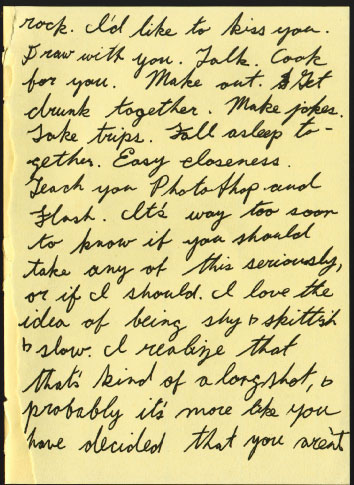 rock. I'd like to kiss you.
Draw with you. Talk. Cook
for you. Make out. Get
drunk together. Make jokes.
Take trips. Fall asleep to-
gether. Easy closeness.
Teach you PhotoShop and
Flash. It's way too soon
to know if you should
take any of this seriously,
or if I should. I love the
idea of being shy & skittish
& slow. I realize that
that's kind of a longshot, &
probably it's more like you
have decided that you aren't